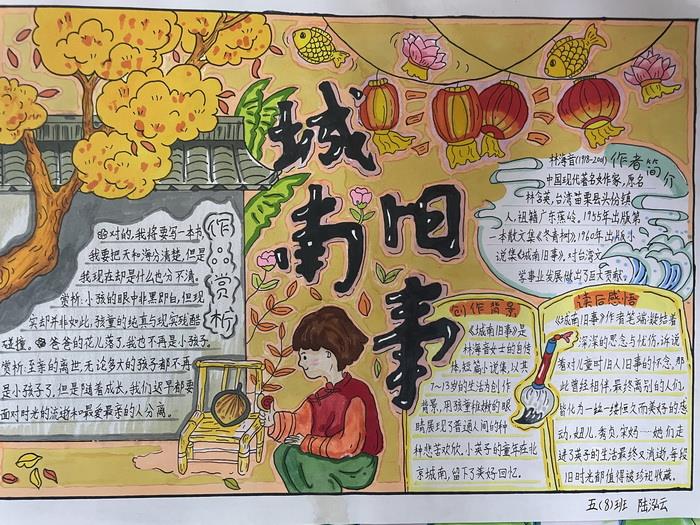 城南旧事
作品赏析
的对的,我将要写一本书,
我要把天和海分清楚,但是
我现在却是什么也分不清。
赏析:小孩的眼中非黑即白,但现
实却并非如此,孩童的纯真与现实残酷
碰撞。爸爸的花儿落了,我也不再是小孩子。
赏析:至亲的离世,无论多大的孩子都不再
是小孩子了,但是随着成长,我们迟早都要
面对时光的流逝和最爱最亲的人分离。
作者简介
林海音(1918-2001)
中国现代著名女作家,原名
林含英,台湾苗栗县头份镇
人,祖籍广东蕉岭。1955年出版第
一本散文集《冬青树》,1960年出版小
说集《城南旧事》,对台湾文
学事业发展做出了巨大贡献。
创作背景
《城南旧事》是
林海音女士的自传
体短篇小说集,以其
7~13岁的生活为创作
背景,用孩童稚嫩的眼
睛展现了普通人间的种
种悲苦欢欣,小英子的童年在北
京城南,留下了美好回忆。
读后感悟
《城南旧事》作者笔端凝结着
深深的思念与忧伤,诉说
着对儿时旧人旧事的怀念,那
些曾经相伴,最终离别的人们,
皆化为一缕一缕恒久而美好的感
动,妞儿,秀贞,宋妈……她们走
进了英子的生活最终又消逝,每段
旧时光都值得被珍视收藏。
五(8)班 陆泓云